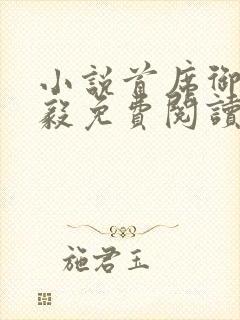 小說首席御
毅免費閱讀
施君玉